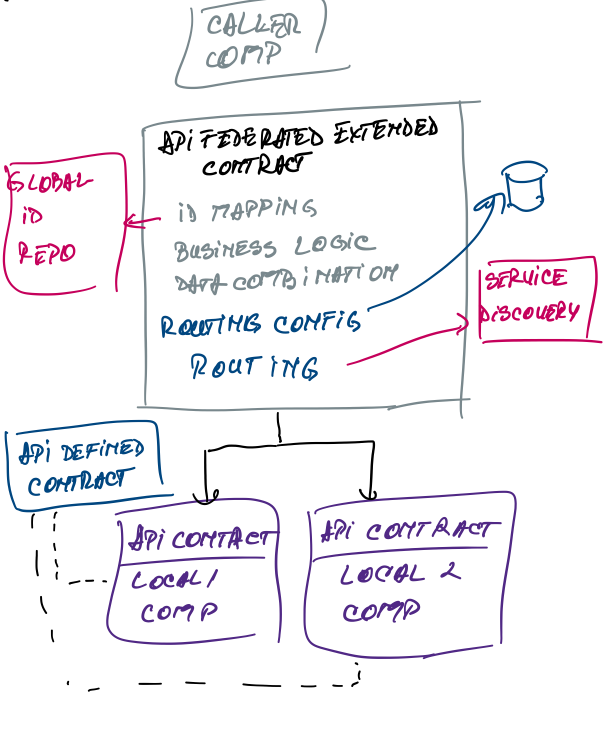 CALLER
COMP
API FEDERATED EXTENDED
CONTRACT
GLOBAL
ID
REPO
ID MAPPING
BUSINESS LOGIC
DATA COMBINATION
ROUTING CONFIG
ROUTING
SERVICE
DISCOVERY
API DEFINED
CONTRACT
API CONTACT
LOCAL 1
COMP
API CONTRACT
LOCAL 2
COMP